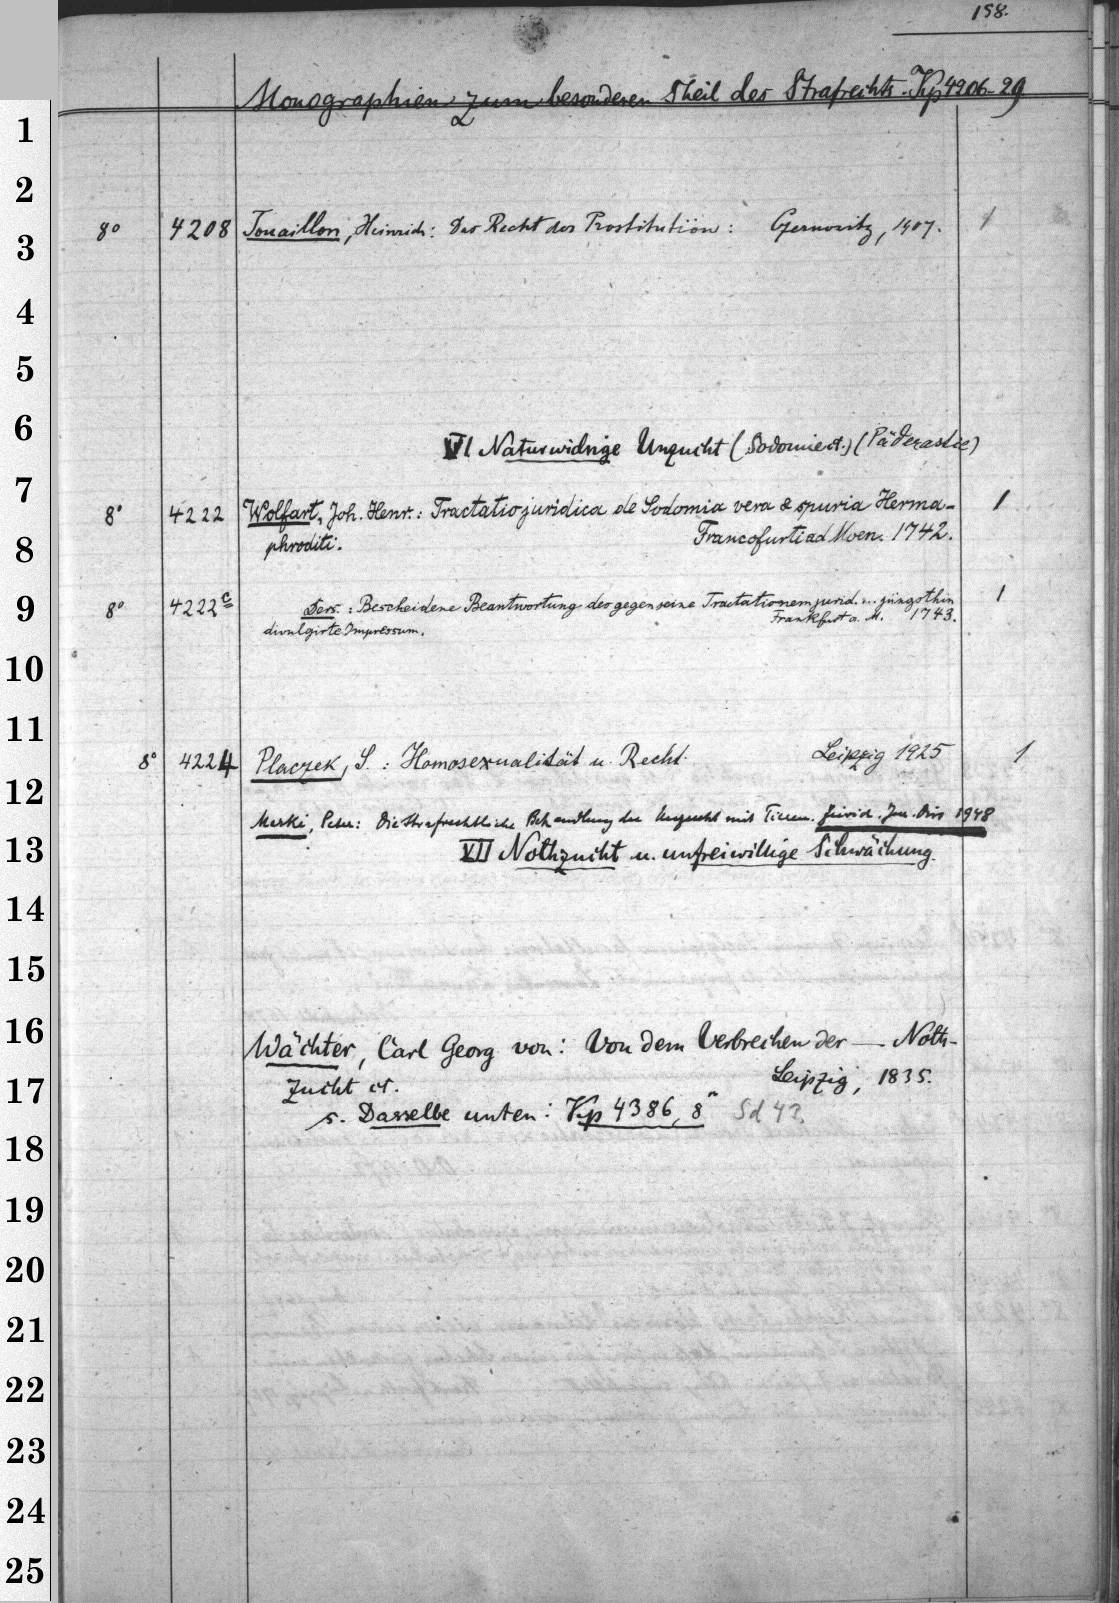 158.
Monographien zum besonderen Theil des Strafrechts. Kp 4206-29
1
2
8° 4208 Touaillon, Heinrich: Das Recht der Prostitution: Czernowitz, 1907. 1
3
4
5
6
VI Naturwidrige Unzucht (Sodomie ct.) (Päderastie)
7
8° 4222 Wolfart, Joh. Henr.: Tractatio juridica de Sodomia vera & spuria Herma- 1
phroditi. Francofurti ad Moen. 1742.
8
9
8° 4222c Ders.: Bescheidene Beantwortung des gegen seine Tractationem jurid. ... jüngsthin 1
divulgirte Impressum. Frankfurt a. M. 1743.
10
11
8° 4224 Placzek, S.: Homosexualität u. Recht. Leipzig 1925 1
12
Merki, Peter: Die strafrechtliche Behandlung der Unzucht mit Tieren. Jurid. Diss 1948
13
VII Nothzucht u. unfreiwillige Schwächung.
14
15
16
Wächter, Carl Georg von: Von dem Verbrechen der — Noth-
17
zucht ct. Leipzig, 1835.
s. Dasselbe unten: Kp 4386, 8° Sd 42.
18
19
20
21
22
23
24
25